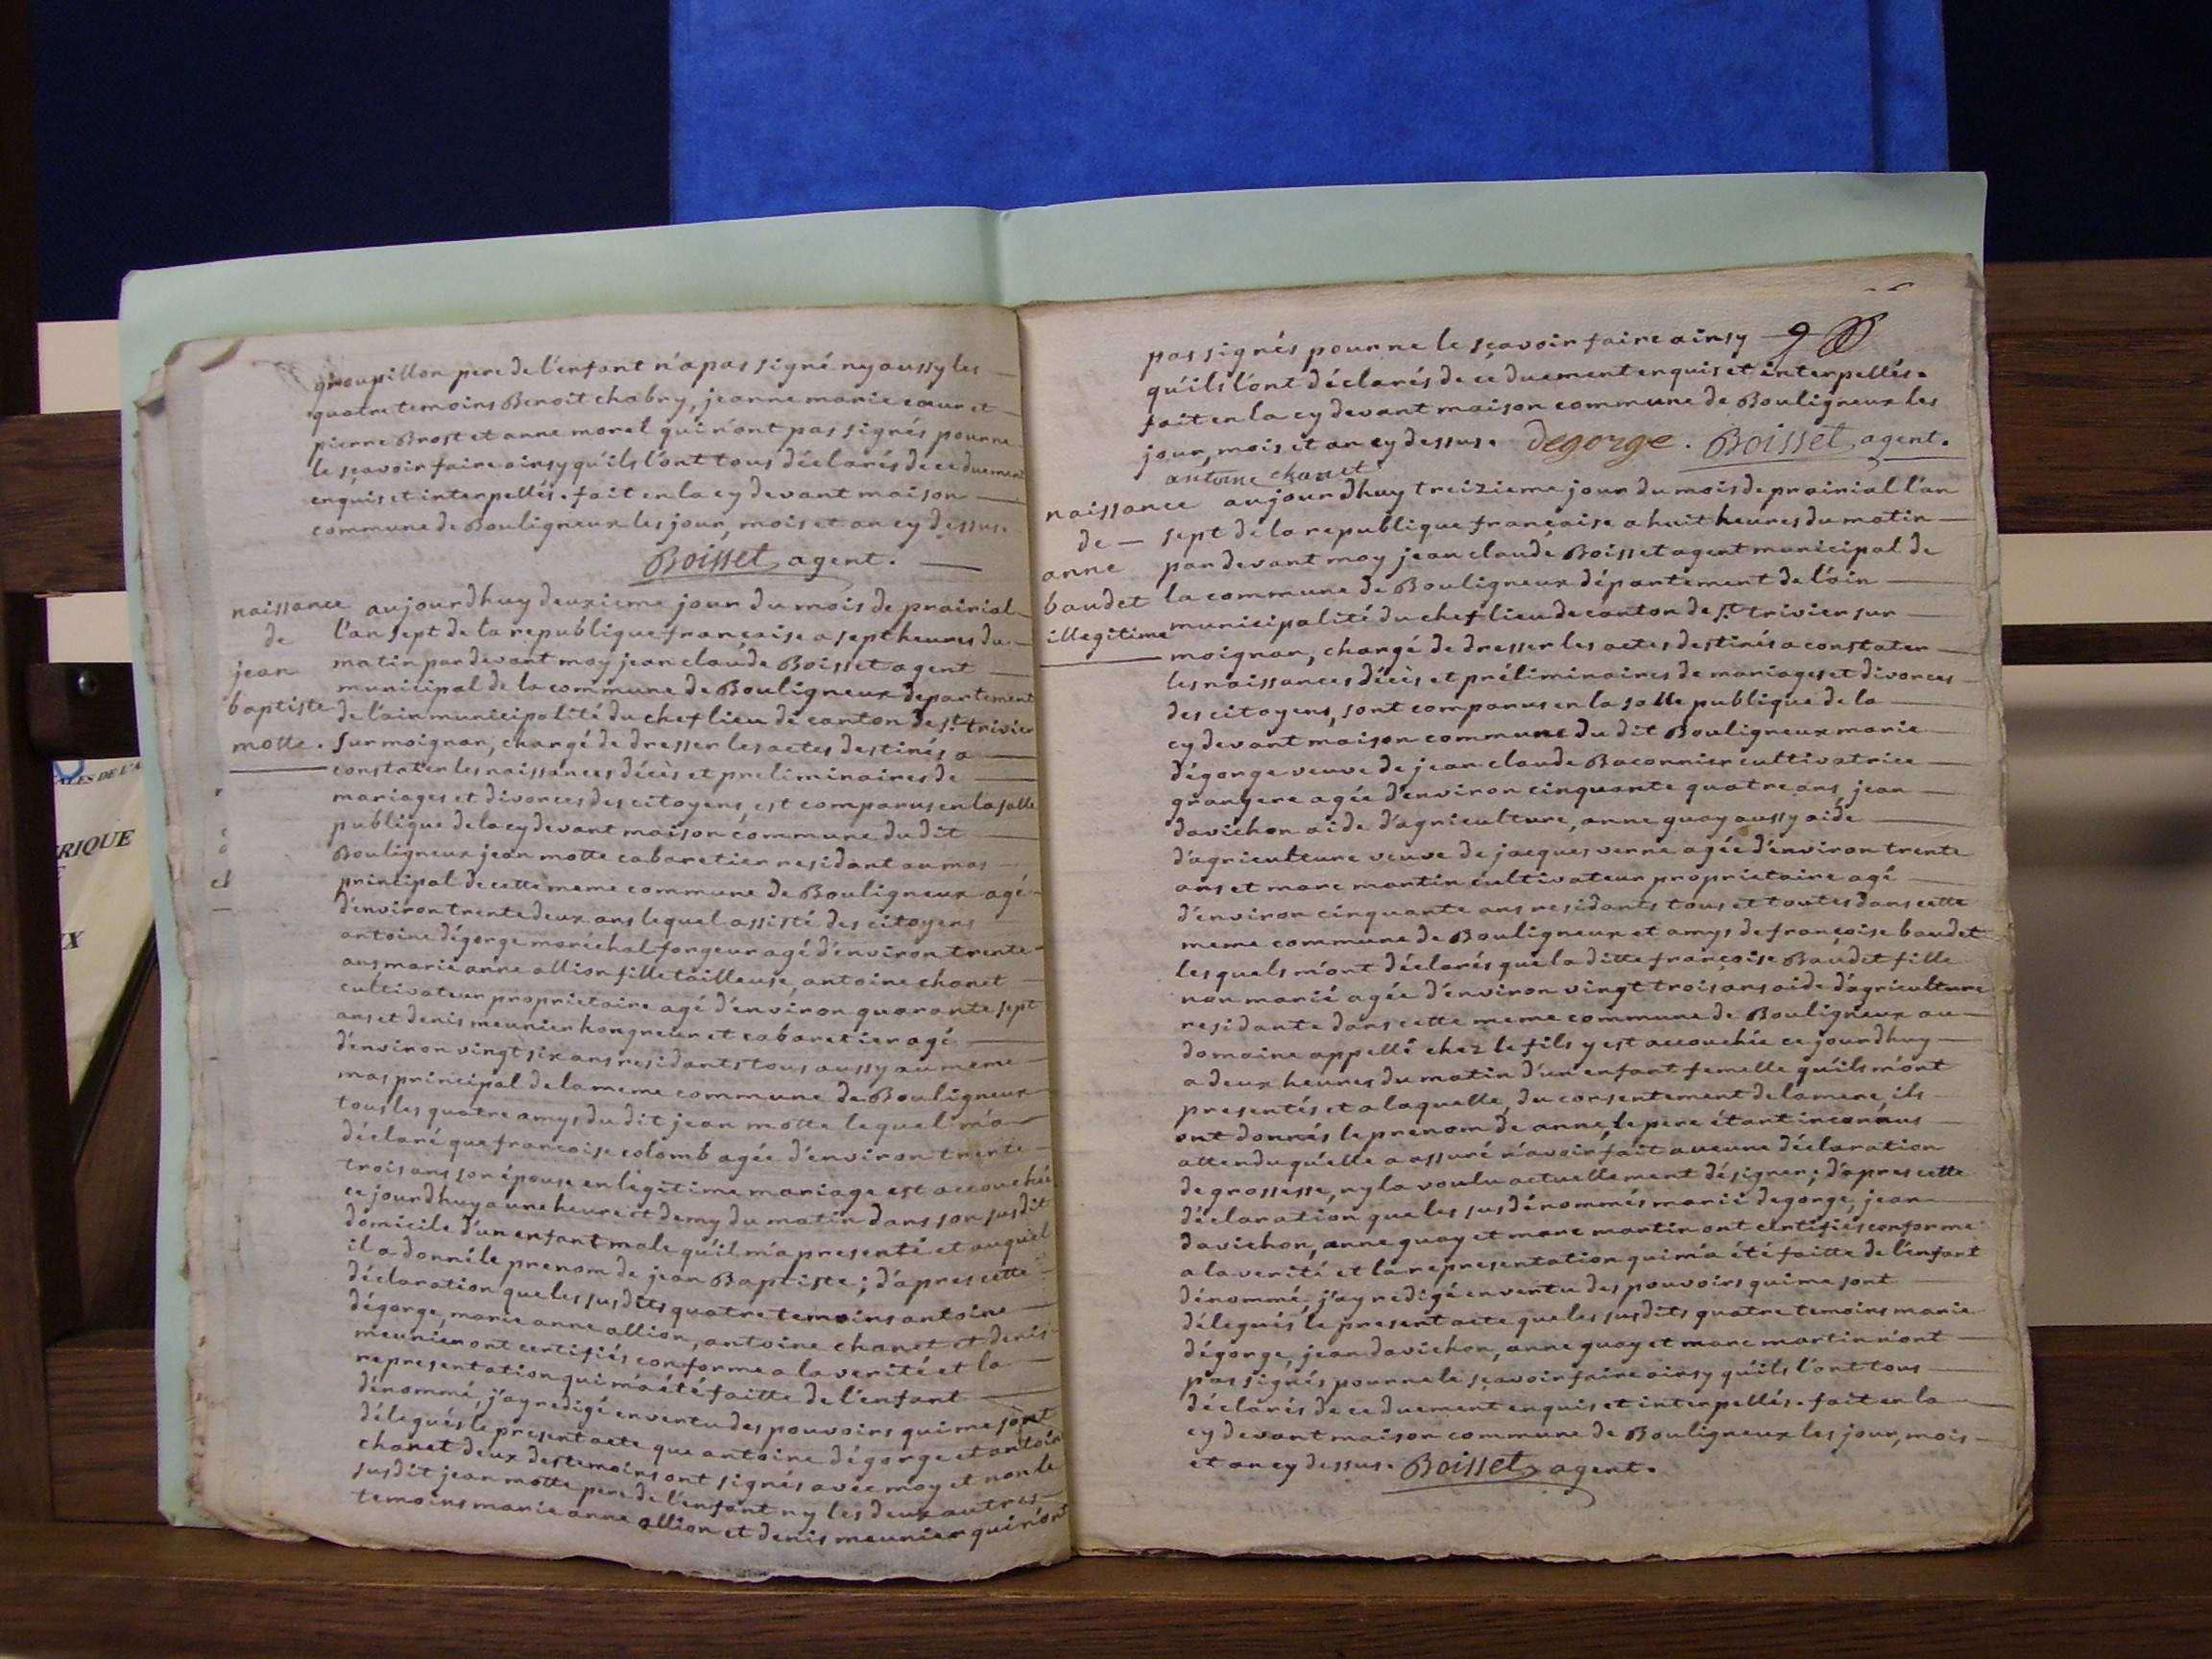 groupillon pere de l'enfant n'a pas signé ny aussy les
quatre temoins Benoit chabry, jeanne marie coeur et
pierre Brost et anne morel qui n'ont pas signés pour ne
le sçavoir faire ainsy qu'ils l'ont tous déclarés de ce duement
enquis et interpellés. fait en la cy devant maison
commune de Bouligneux les jour, mois et an cy dessus.
Boisset agent.
naissance
de
jean
baptiste
motte.
aujourdhuy deuxieme jour du mois de prairial
l'an sept de la republique française a sept heures du
matin par devant moy jean claude Boisset agent
municipal de la commune de Bouligneux departement
de l'ain municipalité du chef lieu de canton de st. trivier
sur moignan, chargé de dresser les actes destinés a
constater les naissances décès et preliminaires de
mariages et divorces des citoyens, est comparus en la salle
publique de la cy devant maison commune du dit
Bouligneux jean motte cabaretier residant au mas
principal de cette meme commune de Bouligneux agé
d'environ trente deux ans lequel assisté des citoyens
antoine dégorge maréchal forgeur agé d'environ trente
ans marie anne allion fille tailleuse, antoine chanet
cultivateur proprietaire agé d'environ quarante sept
ans et denis meunier hongreur et cabaretier agé
d'environ vingt six ans residants tous aussy au meme
mas principal de la meme commune de Bouligneux
tous les quatre amys du dit jean motte lequel m'a
déclaré que francoise colomb agée d'environ trente
trois ans son épouse en légitime mariage est accouchée
ce jourdhuy a une heure et demy du matin dans son susdit
domicile d'un enfant male qu'il m'a presenté et auquel
il a donné le prenom de jean Baptiste; d'apres cette
déclaration que les susdits quatre temoins antoine
dégorge, marie anne allion, antoine chanet et denis
meunier ont certifiés conforme a la verité et la
representation qui m'a été faitte de l'enfant
dénommé, j'ay redigé en vertu des pouvoirs qui me sont
délegués le present acte que antoine dégorge et antoine
chanet deux des temoins ont signés avec moy et non le
susdit jean motte pere de l'enfant ny les deux autres
temoins marie anne allion et denis meunier qui n'ont
pas signés pour ne le sçavoir faire ainsy
qu'ils l'ont déclarés de ce duement enquis et interpellés.
fait en la cy devant maison commune de Bouligneux les
jour, mois et an cy dessus. degorge. Boisset agent.
antoine chanet
naissance
de
anne
baudet
illegitime
aujourdhuy treizieme jour du mois de prairial l'an
sept de la republique française a huit heures du matin
par devant moy jean claude Boisset agent municipal de
la commune de Bouligneux département de l'ain
municipalité du chef lieu de canton de st. trivier sur
moignan, chargé de dresser les actes destinés a constater
les naissances décès et préliminaires de mariages et divorces
des citoyens, sont comparus en la salle publique de la
cy devant maison commune du dit Bouligneux marie
dégorge veuve de jean claude Baconnier cultivatrice
grangere agée d'environ cinquante quatre ans, jean
davichon aide d'agriculture, anne guay aussy aide
d'agriculture veuve de jacques verne agée d'environ trente
ans et marc martin cultivateur proprietaire agé
d'environ cinquante ans residants tous et toutes dans cette
meme commune de Bouligneux et amys de françoise baudet
les quels m'ont déclarés que la ditte françoise Baudet fille
non marié agée d'environ vingt trois ans aide d'agriculture
residante dans cette meme commune de Bouligneux au
domaine appellé chez le fils y est accouchée ce jourdhuy
a deux heures du matin d'un enfant femelle qu'ils m'ont
presentés et a laquelle, du consentement de la mere, ils
ont donnés le prenom de anne, le pere étant inconnus
attendu qu'elle a assuré n'avoir fait aucune déclaration
de grossesse, ny la voulu actuellement désigner; d'apres cette
déclaration que les susdénommés marie degorge, jean
davichon, anne guay et marc martin ont certifiés conforme
a la verité et la representation qui m'a été faitte de l'enfant
dénommé, j'ay redigé en vertu des pouvoirs qui me sont
délegués, le present acte que les susdits quatre temoins marie
dégorge, jean davichon, anne guay et marc martin n'ont
pas signés pour ne le sçavoir faire ainsy qu'ils l'ont tous
déclarés de ce duement enquis et interpellés. fait en la
cy devant maison commune de Bouligneux les jour, mois
et an cy dessus. Boisset agent.
RIQUE